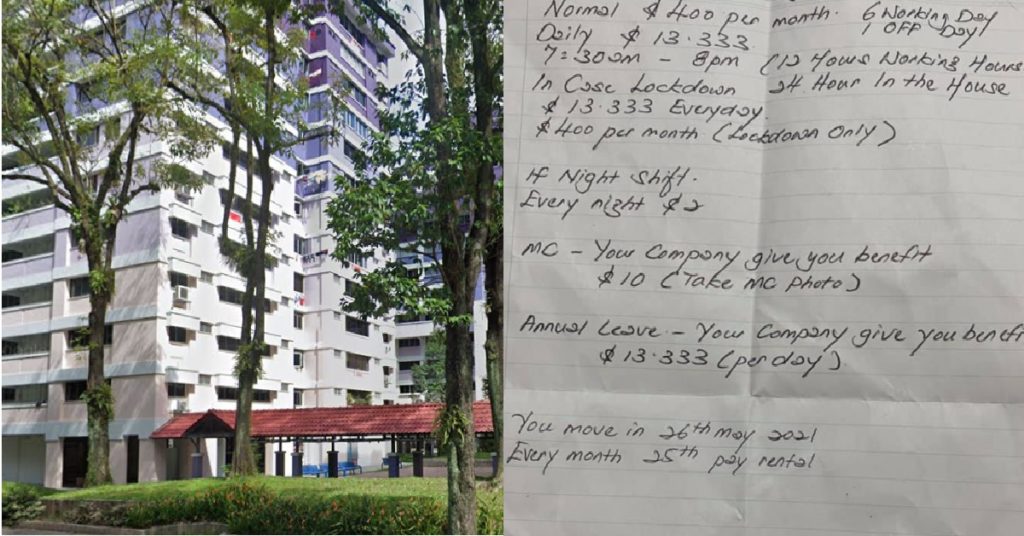 Normal $400 per month. 6 Working Day
1 OFF Day
Daily $ 13.333.
7:30am - 8pm (12 Hours Working Hours
In Case Lockdown 24 Hour In the House
$ 13.333 Everyday.
$400 per month (Lockdown Only)
If Night Shift.
Every night $2
MC - Your Company give you benefit
$10 (Take MC Photo)
Annual Leave - Your Company give you benefit
$ 13.333 (per day).
You move in 26th may 2021
Every month 25th pay rental